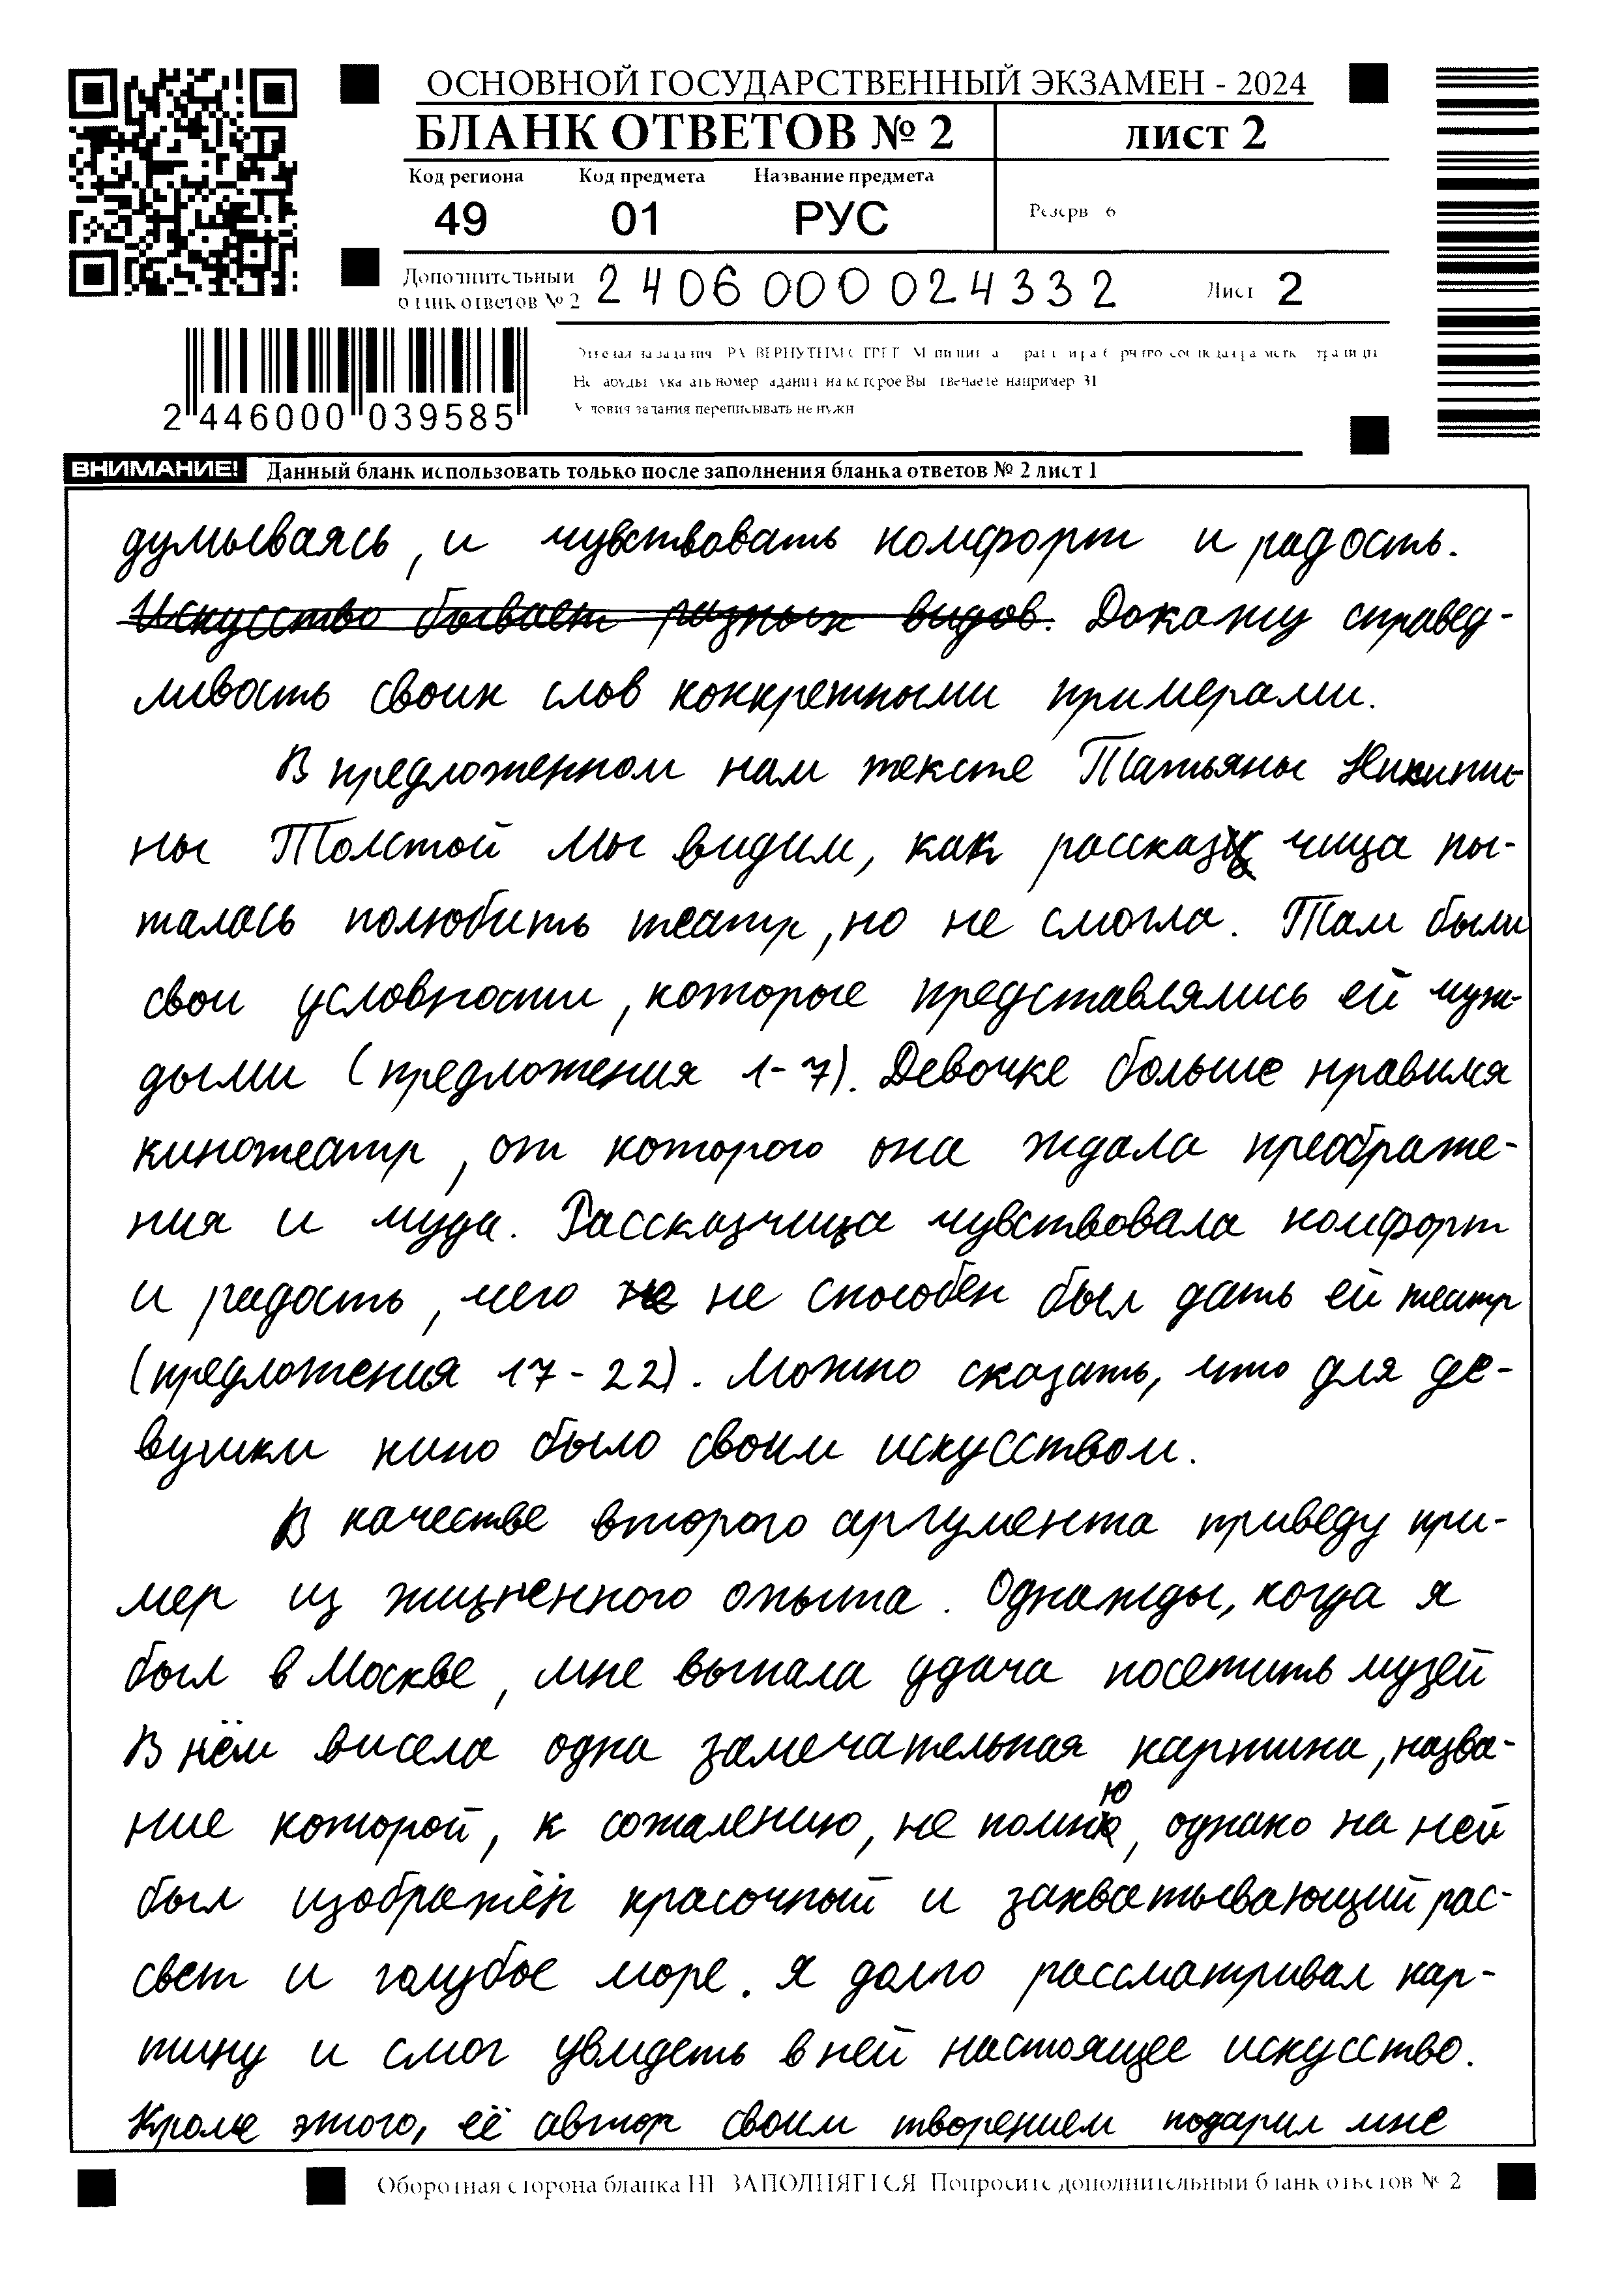 ОСНОВНОЙ ГОСУДАРСТВЕННЫЙ ЭКЗАМЕН - 2024
БЛАНК ОТВЕТОВ № 2
ЛИСТ 2
Код региона Код предмета Название предмета
49 01 РУС
Резерв 6
Дополнительный
бланк ответов № 2
2406000024332
Лист 2
2 446000 039585
Условия задания переписывать не нужн
ВНИМАНИЕ! Данный бланк использовать только после заполнения бланка ответов № 2 лист 1
думываясь, и чувствовать комфорт и радость.
Искусство бывает разных видов. Докажу справед-
ливость своих слов конкретными примерами.
В предложенном нам тексте Татьяны Никити-
ны Толстой мы видим, как рассказчица пы-
талась полюбить театр, но не смогла. Там были
свои условности, которые представлялись ей чуж-
дыми (предложения 1-7). Девочке больше нравился
кинотеатр, от которого она ждала преображе-
ния и чуда. Рассказчица чувствовала комфорт
и радость, чего не не способен был дать ей театр
(предложения 17-22). Можно сказать, что для де-
вушки кино было своим искусством.
В качестве второго аргумента приведу при-
мер из жизненного опыта. Однажды, когда я
был в Москве, мне выпала удача посетить музей
В нём висела одна замечательная картина, назва-
ние которой, к сожалению, не помню, однако на ней
был изображён красочный и захватывающий рас-
свет и голубое море. Я долго рассматривал кар-
тину и смог увидеть в ней настоящее искусство.
Кроме этого, её автор своим творением подарил мне
Оборотная сторона бланка НЕ ЗАПОЛНЯЕТСЯ Попросите дополнительный бланк ответов № 2